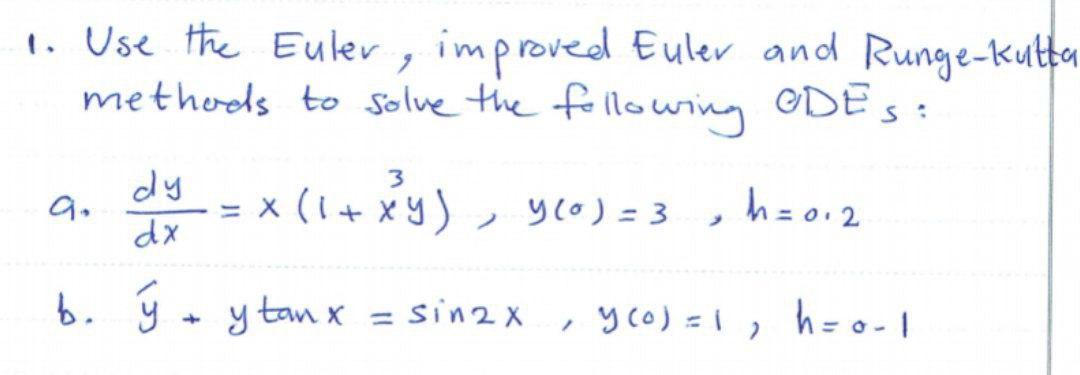 1. Use the Euler, improved Euler and Runge-Kutta
methods to solve the following ODEs:
a. dy/dx = x(1 + x³y), y(0) = 3, h = 0.2
b. ý + y tan x = sin2x, y(0) = 1, h = 0-1